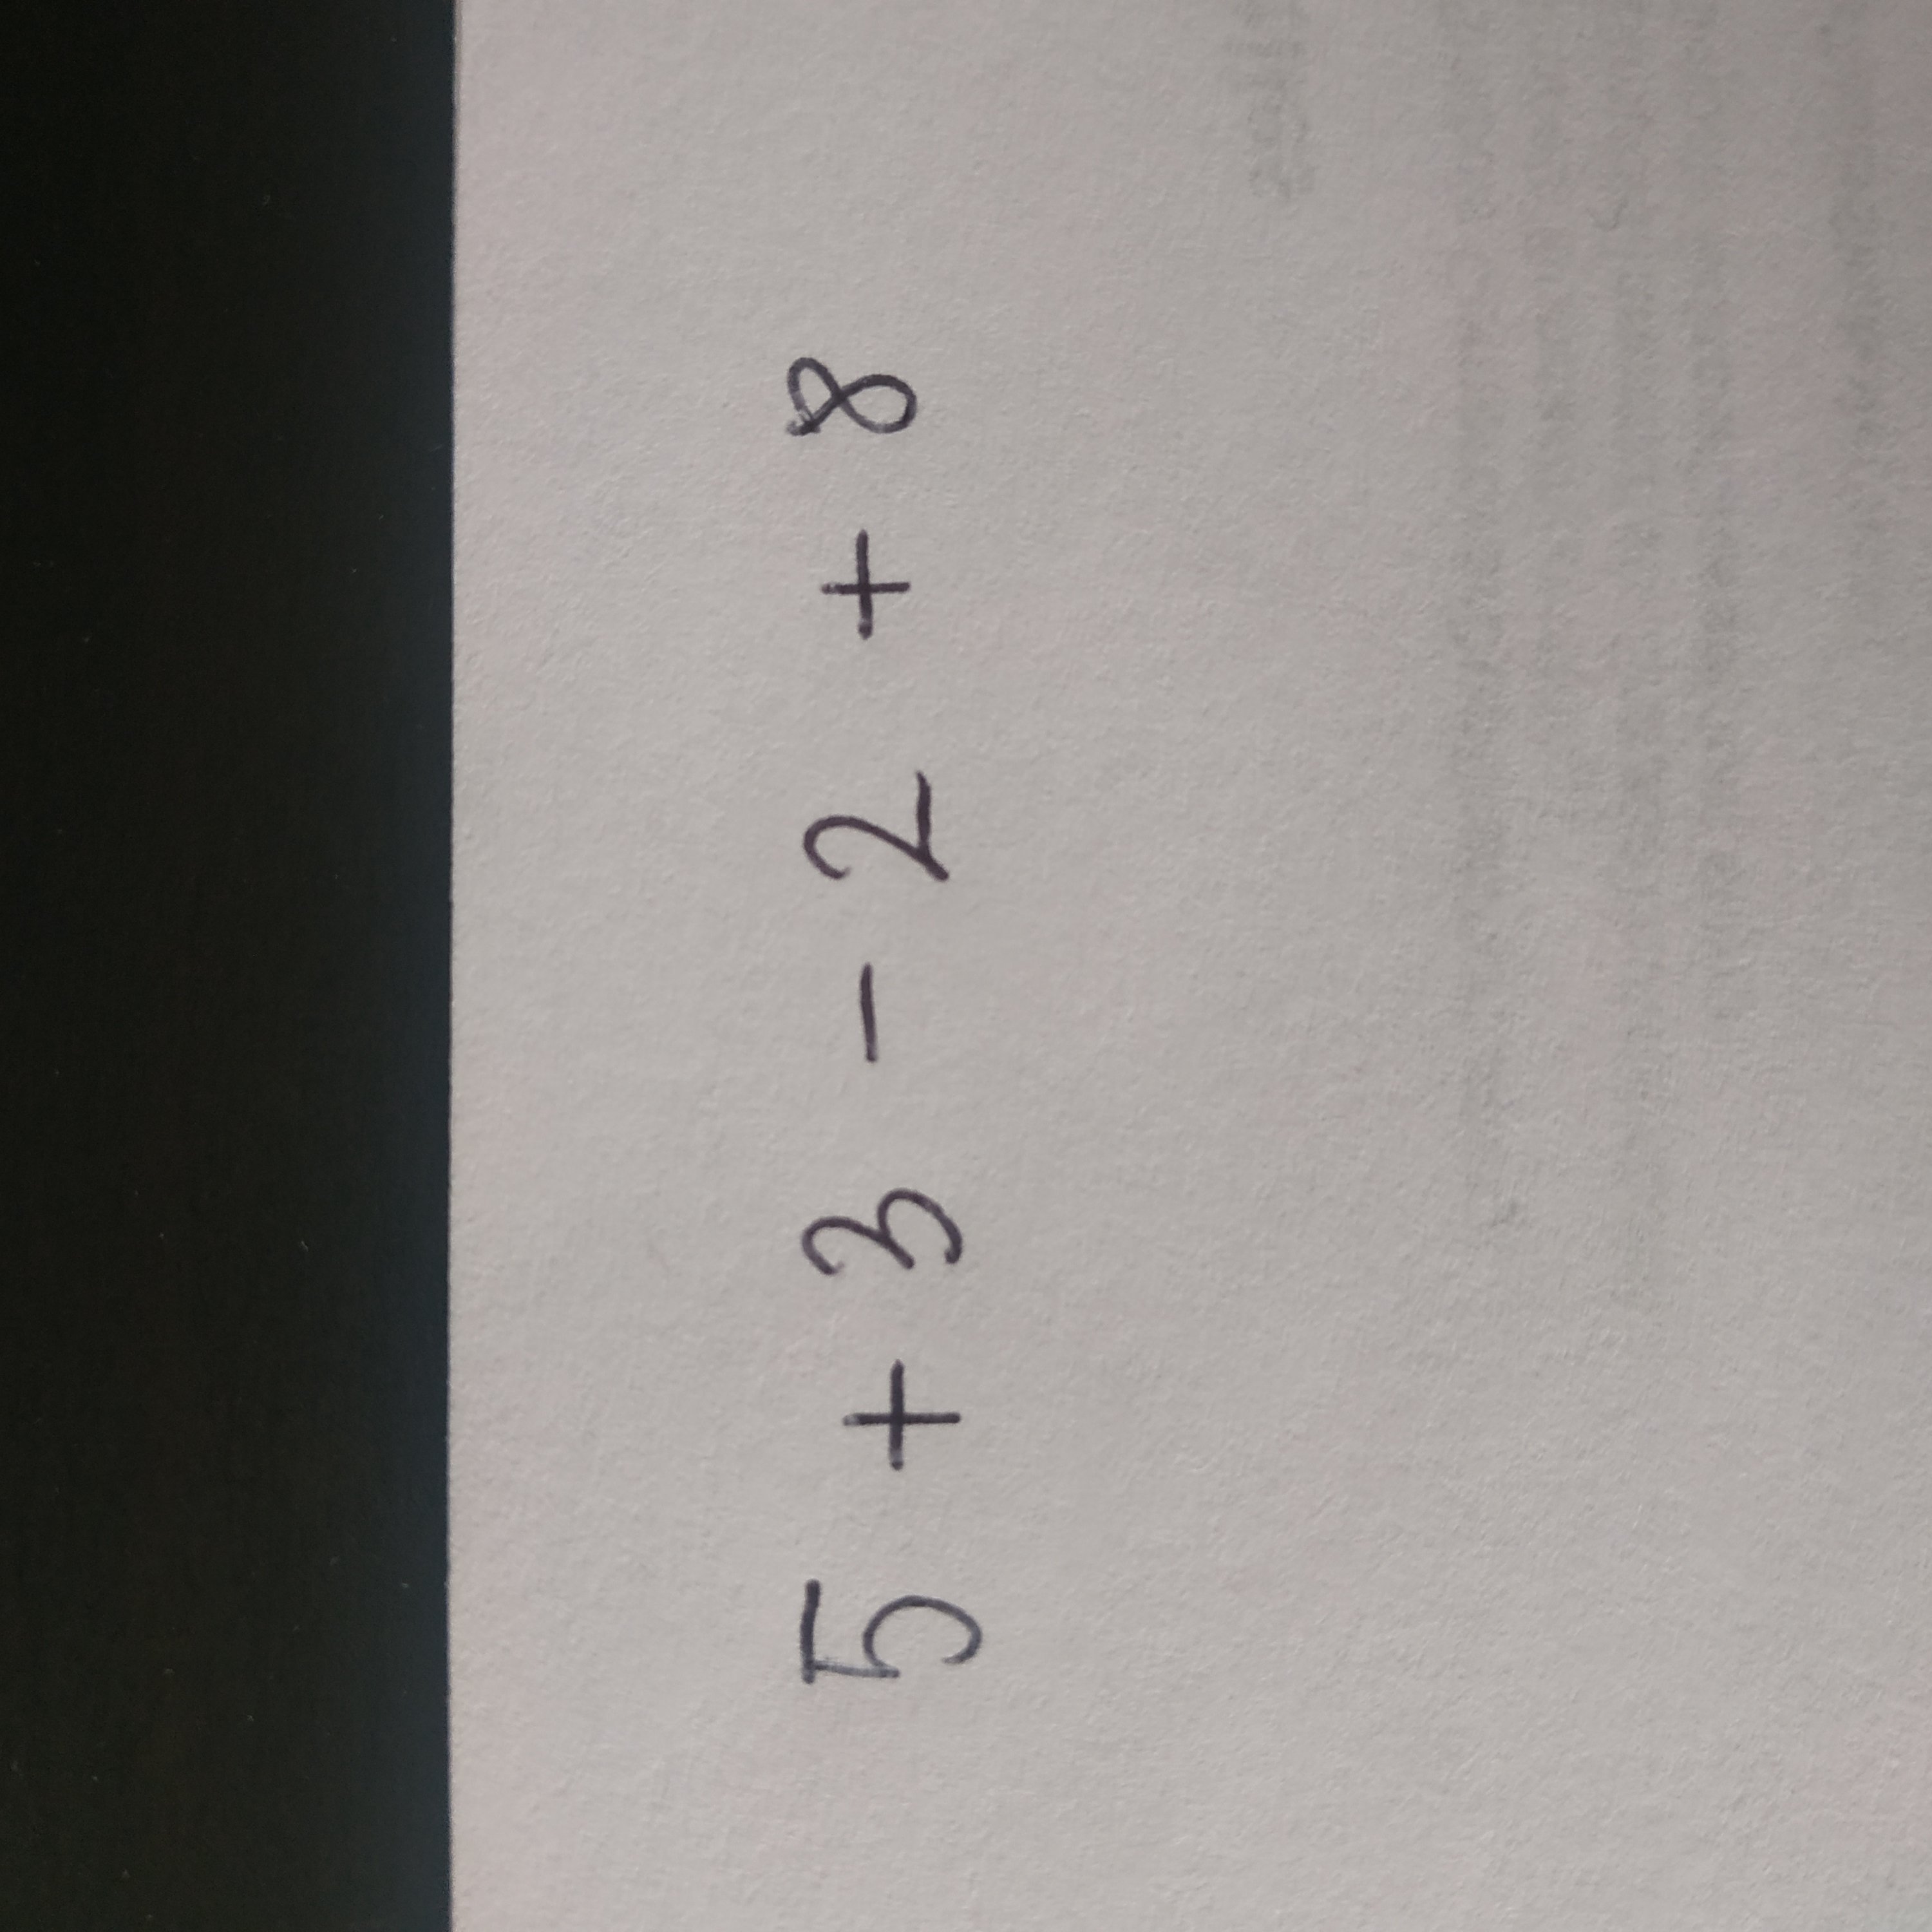 5 + 3 - 2 + 8